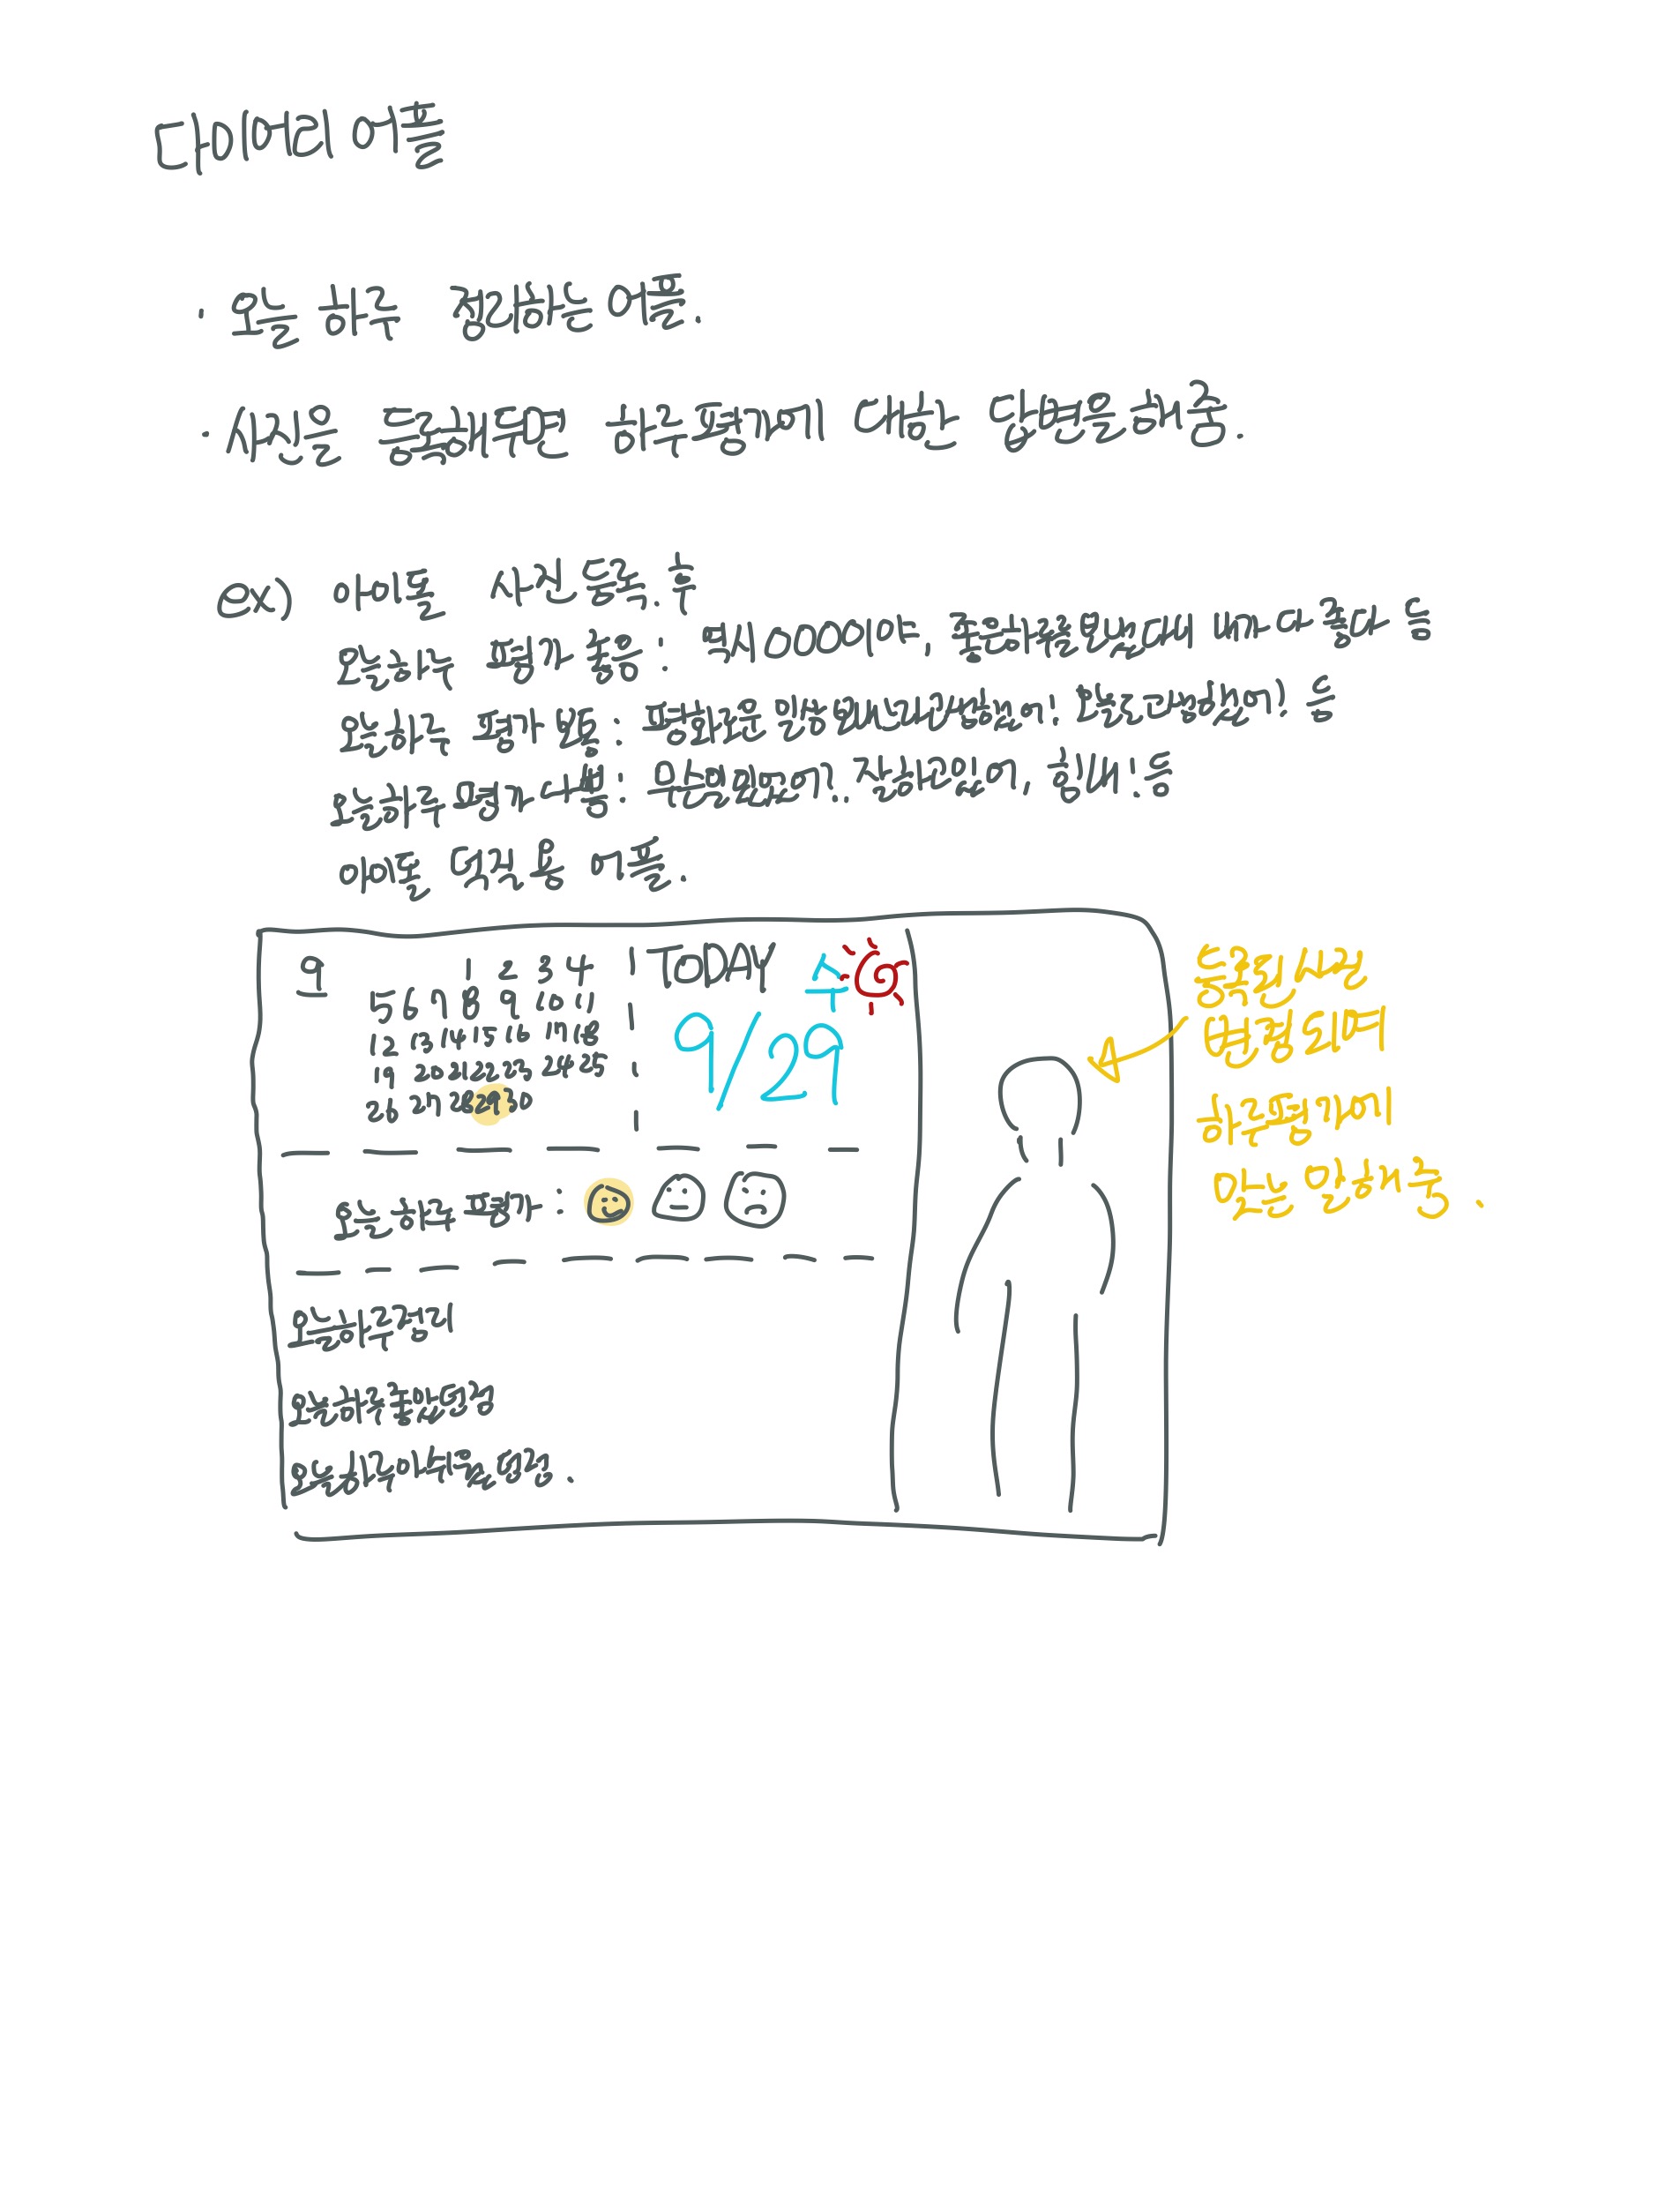 다이어리 어플
· 오늘 하루 정리하는 어플.
· 사진을 등록해두면 하루평가에 대한 답변을 해줌.
ex) 아이돌 사진 등록. 후
오늘하루 평가 좋음 : 역시 0000이야, 좋은하루를 보냈다니 내가 다 좋다 등
오늘하루 평가 보통 : 평화로운 일상
오늘하루 평가 나쁨 : 무슨일있었어?.. 잘하고있어, 힘내! 등
어플.
9 1 2 3 4 TODAY 수
5 6 7 8 9 10 11
12 13 14 15 16 17 18
19 20 21 22 23 24 25
26 27 28 29 30
9/29
오늘 하루 평가 :
오늘하루정리
오늘하루 좋았던점
오늘하루 아쉬웠던점.
등록된 사진
변경 되며
하루평가에
맞는 말 해줌.